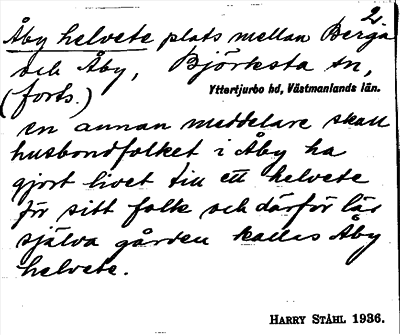 2.
Åby helvete plats mellan Berga
och Åby, Björksta sn,
(forts.) Yttertjurbo hd, Västmanlands län.
en annan meddelare skall
husbondfolket i Åby ha
gjort livet till ett helvete
för sitt folk och därför lär
själva gården kallas Åby
helvete.
HARRY STÅHL 1936.